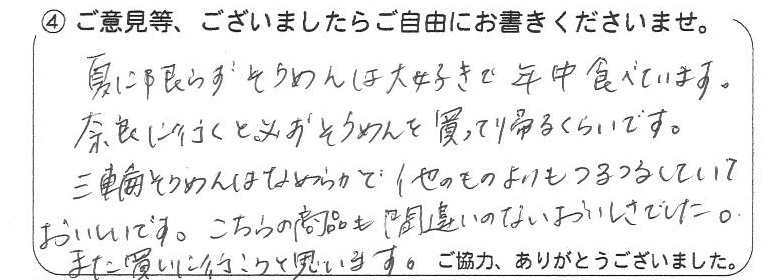 ④ ご意見等、ございましたらご自由にお書きくださいませ。
夏に限らずそうめんは大好きで 年中食べています。
奈良に行くと必ずそうめんを買って帰るくらいです。
三輪そうめんはなめらかで他のものよりもつるつるしていて
おいしいです。こちらの商品も間違いのないおいしさでした。
また買いに行こうと思います。 ご協力、ありがとうございました。